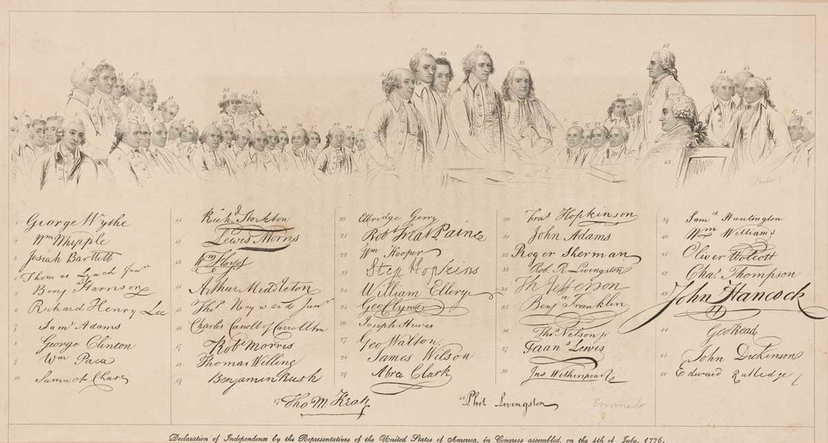 George Wythe
Wm Whipple
Josiah Bartlett
Thomas Lynch Junr
Benj Harrison
Richard Henry Lee
Saml Adams
George Clinton
Wm Paca
Samuel Chase
Richd Stockton
Lewis Morris
Wm Floyd
Arthur Middleton
Thos Heyward Junr
Charles Carroll of Carrollton
Robt Morris
Thomas Willing
Benjamin Rush
Elbridge Gerry
Robt Treat Paine
Wm Hooper
Step Hopkins
William Ellery
Geo Clymer
Joseph Hewes
Geo Walton
James Wilson
Abra Clark
Fras Hopkinson
John Adams
Roger Sherman
Rob R. Livingston
Th Jefferson
Benja Franklin
Thos Nelson jr
Frans Lewis
Jno Witherspoon
Saml Huntington
Wm Williams
Oliver Wolcott
Chas Thompson
John Hancock
Geo Read
John Dickinson
Edward Rutledge
Tho M. Kean
Phil. Livingston
Declaration of Independence by the Representatives of the United States of America, in Congress assembled, on the 4th of July, 1776.